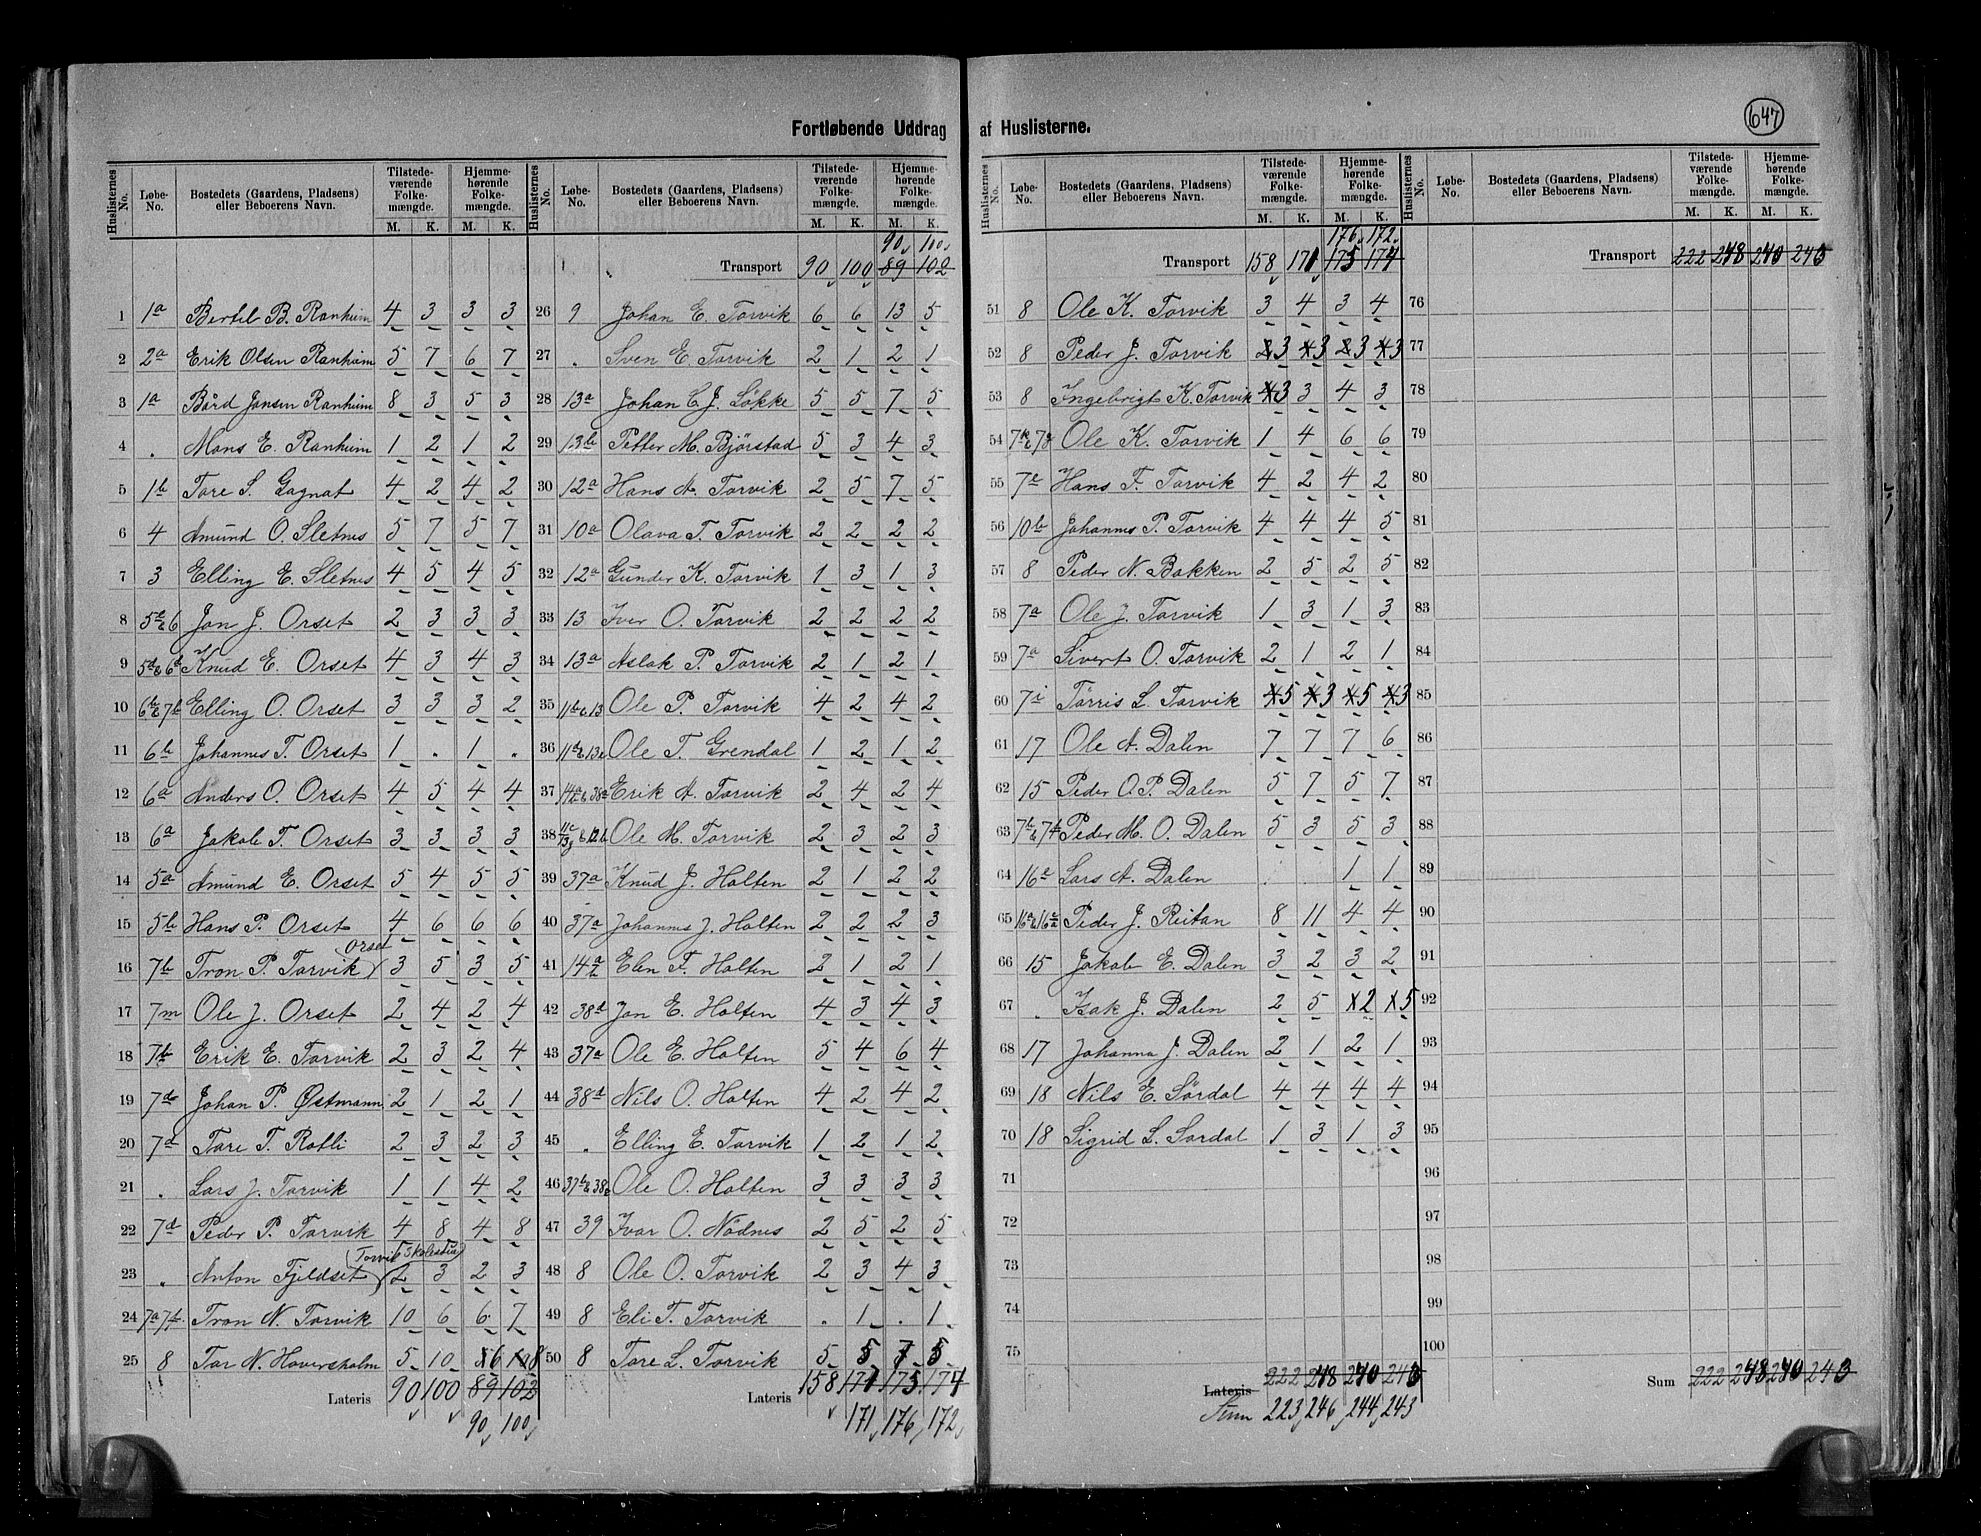 647
Fortløbende Uddrag af Huslisterne.
Huslisternes No. Løbe-No. Bostedets (Gaardens, Pladsens) eller Beboerens Navn. Tilstedeværende Folkemængde. M. K. Hjemmehørende Folkemængde. M. K.
1 1a Bertel B. Ranheim 4 3 3 3
2 2a Erik Olsen Ranheim 5 7 6 7
3 1a Bård Jonsen Ranheim 8 3 5 3
4 . Mons E. Ranheim 1 2 1 2
5 1b Tore S. Gagnat 4 2 4 2
6 4 Amund O. Sletnes 5 7 5 7
7 3 Elling E. Sletnes 4 5 4 5
8 Jon J. Orset 2 3 3 3
9 Knud E. Orset 4 3 4 3
10 Elling O. Orset 3 3 3 2
11 6b Johannes T. Orset 1 . 1 .
12 6a Anders O. Orset 4 5 4 4
13 6a Jakob T. Orset 3 3 3 3
14 5a Amund E. Orset 5 4 5 5
15 5b Hans P. Orset 4 6 6 6
16 7b Tron P. Torvik (Orset) 3 5 3 5
17 7m Ole J. Orset 2 4 2 4
18 7b Erik E. Torvik 2 3 2 4
19 7d Johan P. Østmann 2 1 2 1
20 7d Tore T. Rotli 2 3 2 3
21 . Lars J. Torvik 1 1 4 2
22 7d Peder P. Torvik 4 8 4 8
23 . Anton Fjeldset (Torvik Skolestue) 2 3 2 3
24 Tron N. Torvik 10 6 6 7
25 8 Tor N. Haversholm 5 10 6 8
Lateris 90 100 89 102
90 100
Huslisternes No. Løbe-No. Bostedets (Gaardens, Pladsens) eller Beboerens Navn. Tilstedeværende Folkemængde. M. K. Hjemmehørende Folkemængde. M. K.
90 100
Transport 90 100 89 102
26 9 Johan E. Torvik 6 6 13 5
27 . Sven E. Torvik 2 1 2 1
28 13a Johan C. J. Løkke 5 5 7 5
29 13b Petter M. Bjørstad 5 3 4 3
30 12a Hans A. Torvik 2 5 7 5
31 10a Olava T. Torvik 2 2 2 2
32 12a Gunder K. Torvik 1 3 1 3
33 13 Iver O. Torvik 2 2 2 2
34 13a Aslak P. Torvik 2 1 2 1
35 Ole P. Torvik 4 2 4 2
36 Ole T. Grendal 1 2 1 2
37 Erik A. Torvik 2 4 2 4
38 Ole M. Torvik 2 3 2 3
39 37a Knud J. Holten 2 1 2 2
40 37a Johannes J. Holten 2 2 2 3
41 Elen T. Holten 2 1 2 1
42 38d Jon E. Holten 4 3 4 3
43 37a Ole E. Holten 5 4 6 4
44 38d Nils O. Holten 4 2 4 2
45 . Elling E. Torvik 1 2 1 2
46 Ole O. Holten 3 3 3 3
47 39 Ivar O. Nødnes 2 5 2 5
48 8 Ole O. Torvik 2 3 4 3
49 8 Eli T. Torvik . 1 . 1
50 8 Tore L. Torvik 5 5 7 5
Lateris 158 171 175 174
171 176 172
Huslisternes No. Løbe-No. Bostedets (Gaardens, Pladsens) eller Beboerens Navn. Tilstedeværende Folkemængde. M. K. Hjemmehørende Folkemængde. M. K.
176 172
Transport 158 171 175 174
51 8 Ole K. Torvik 3 4 3 4
52 8 Peder J. Torvik 3 3 3 3
53 8 Ingebrigt K. Torvik 3 3 4 3
54 Ole K. Torvik 1 4 6 6
55 7e Hans T. Torvik 4 2 4 2
56 10b Johannes P. Torvik 4 4 4 5
57 8 Peder N. Bakken 2 5 2 5
58 7a Ole J. Torvik 1 3 1 3
59 7a Sivert O. Torvik 2 1 2 1
60 7i Tørris L. Torvik 5 3 5 3
61 17 Ole A. Dalen 7 7 7 6
62 15 Peder O. P. Dalen 5 7 5 7
63 Peder M. O. Dalen 5 3 5 3
64 16e Lars A. Dalen . . 1 1
65 Peder J. Reitan 8 11 4 4
66 15 Jakob E. Dalen 3 2 3 2
67 . Isak J. Dalen 2 5 2 5
68 17 Johanna J. Dalen 2 1 2 1
69 18 Nils E. Sørdal 4 4 4 4
70 18 Sigrid L. Sørdal 1 3 1 3
71
72
73
74
75
Lateris 222 248 240 243
Sum 223 246 244 243
Huslisternes No. Løbe-No. Bostedets (Gaardens, Pladsens) eller Beboerens Navn. Tilstedeværende Folkemængde. M. K. Hjemmehørende Folkemængde. M. K.
Transport 222 248 240 243
76
77
78
79
80
81
82
83
84
85
86
87
88
89
90
91
92
93
94
95
96
97
98
99
100
Sum 222 248 240 243